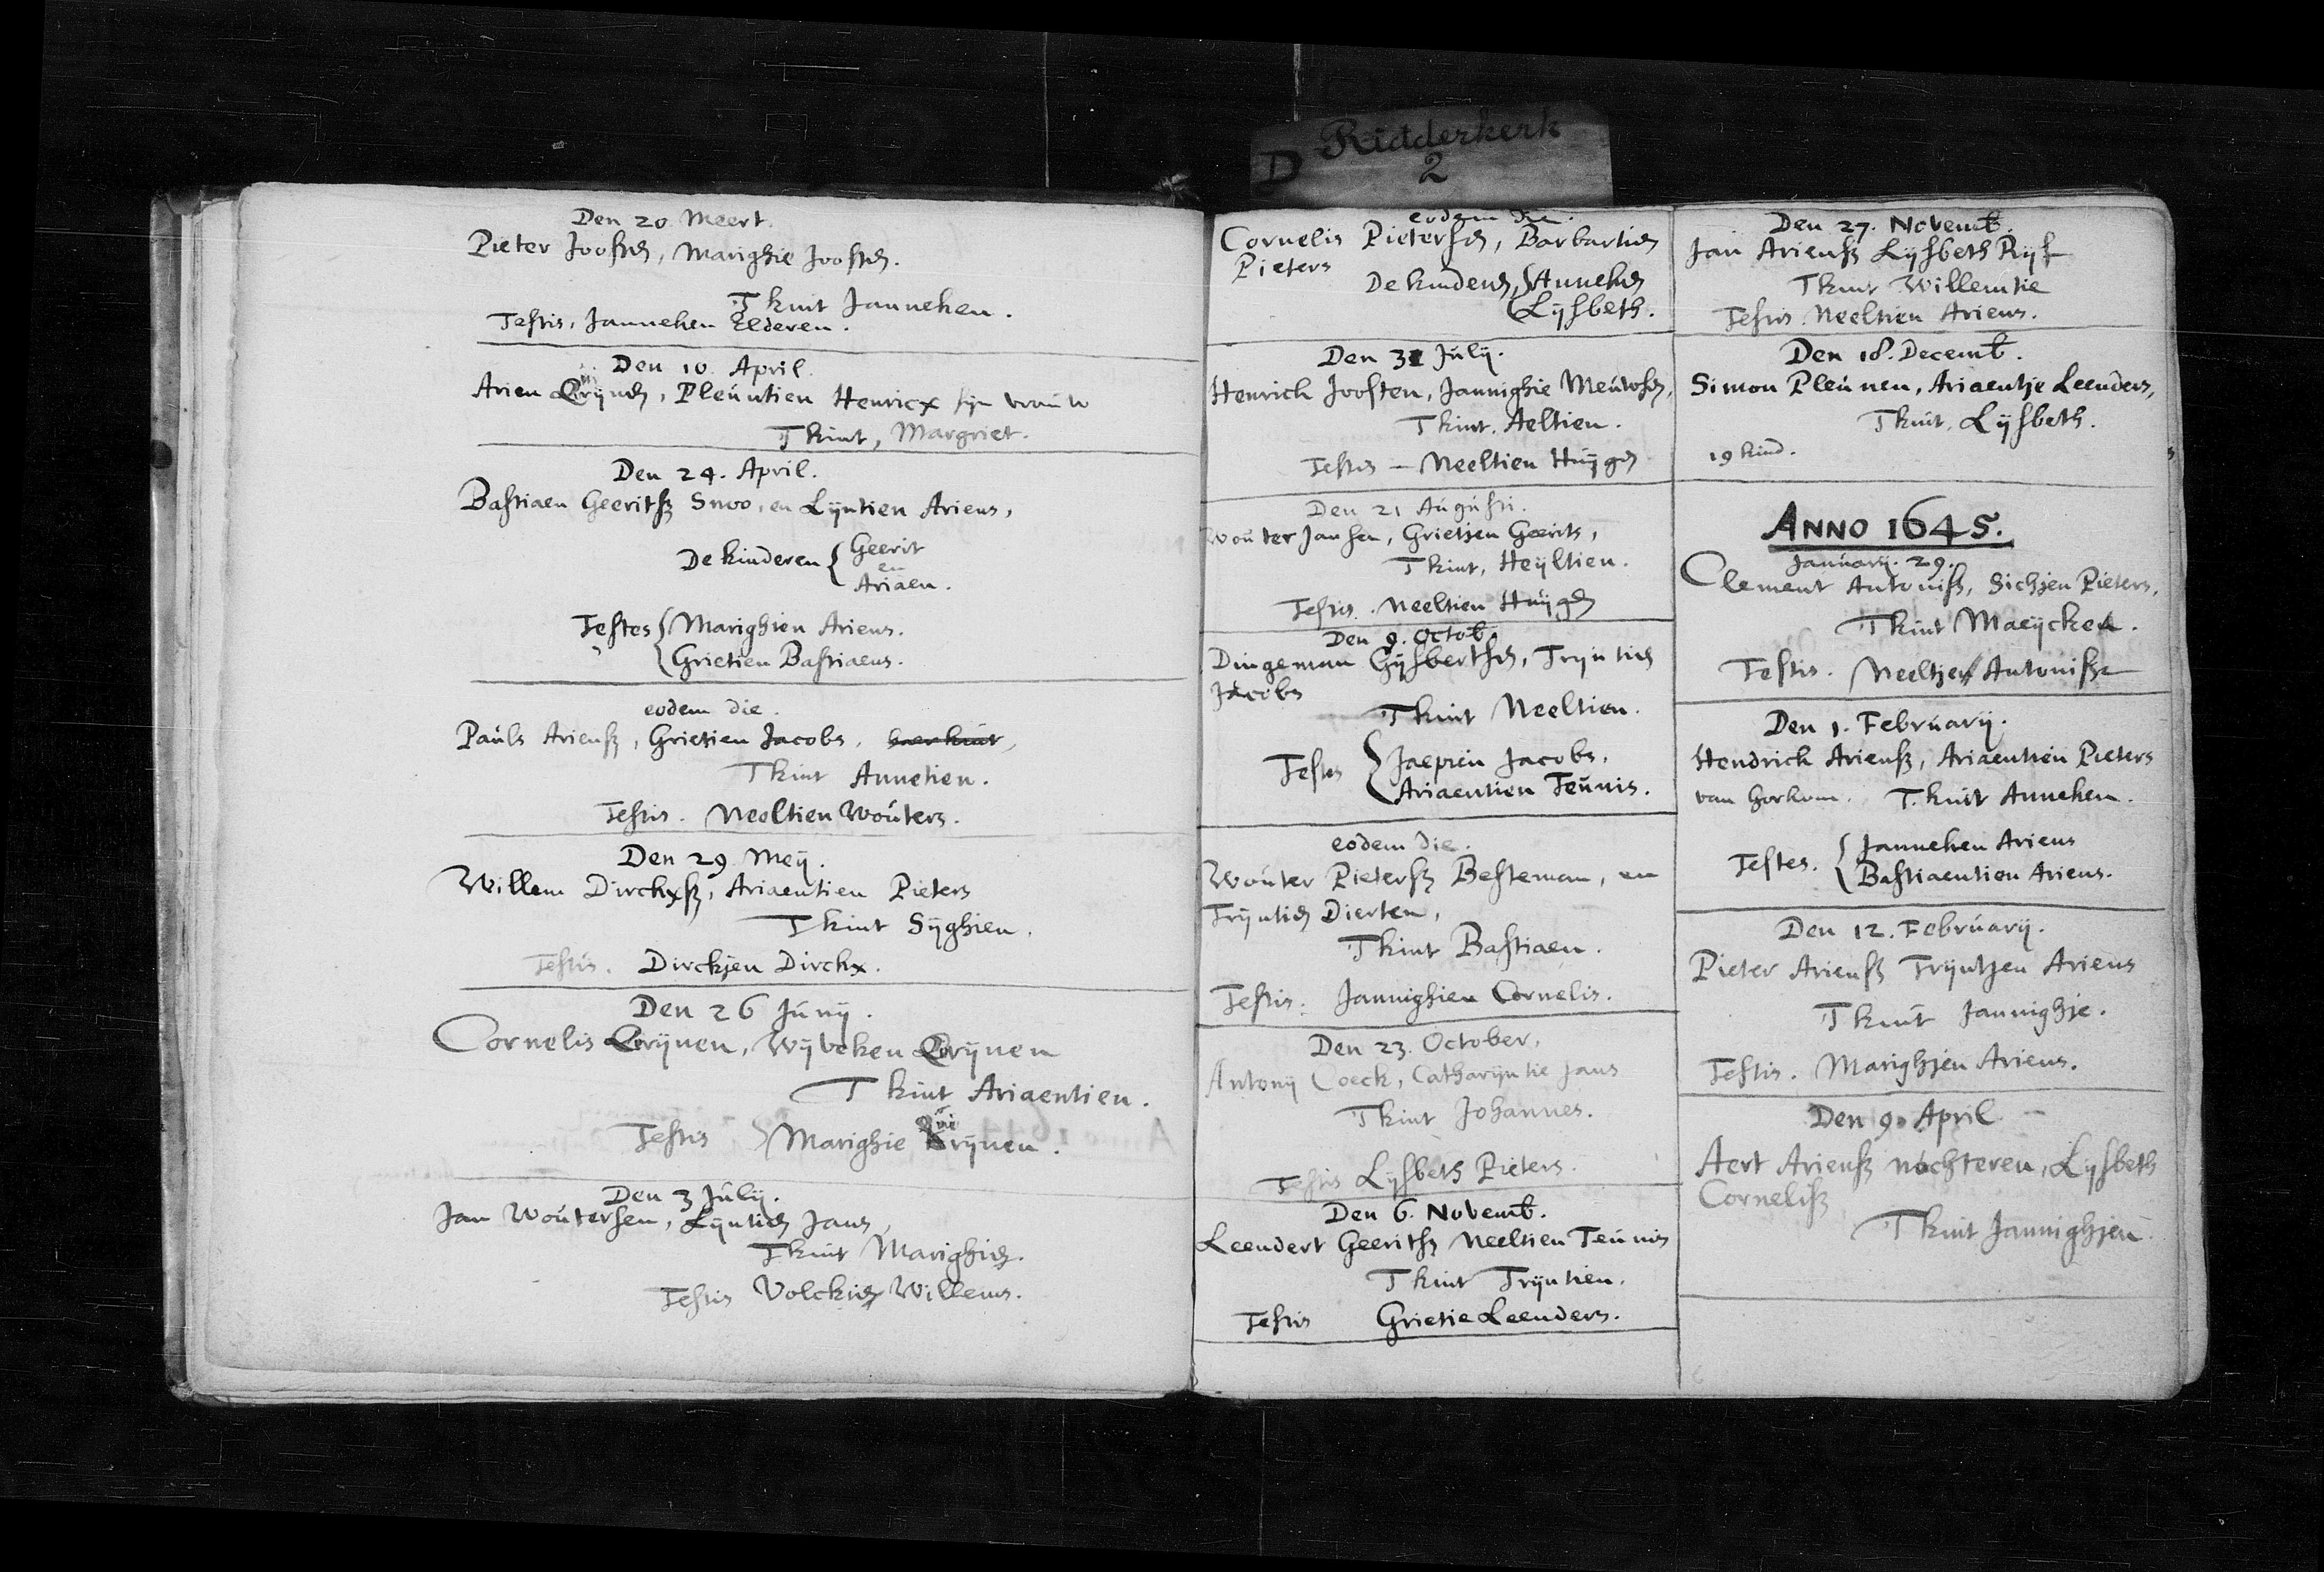 D Ridderkerk
2
Den 20 Meert.
Pieter Joosten, Marighie Joosten.
T kint Janneken.
Testis, Janneken Elderen.
Den 10. April.
Arien Qrijnen, Pleuntien Henricx sijn vrouw
T kint, Margriet.
Den 24. April.
Bastiaen Geeritsz Snoo, en Lijntien Ariens,
De kinderen { Geerit
en
Ariaen.
Testes { Marighien Ariens.
Grietien Bastiaens.
eodem die.
Pauls Ariensz, Grietien Jacobs,
T kint Annetien.
Testis. Neeltien Wouters.
Den 29 Meij.
Willem Dirckxsz, Ariaentien Pieters
T kint Sijghien.
Testis. Dirckjen Dirckx.
Den 26 Junij.
Cornelis Qrijnen, Wijveken Qrijnen
T kint Ariaentien.
Testis } Marighie Qrijnen.
Den 3 Julij.
Jan Woutersen, Lijntien Jans,
T kint Marighien.
Testis Volckien Willems.
eodem die.
Cornelis Pietersen, Barbartien
Pieters
De kinderen, { Anneken
Lijsbeth.
Den 31 Julij.
Henrick Joosten, Jannighie Meuwsen,
T kint. Aeltien.
Testes - Neeltien Huijgen
Den 21 Augusti.
Wouter Jansen, Grietjen Geerits,
T kint, Heijltien.
Testis. Neeltien Huijgen
Den 9. Octob.
Dingeman Gijsbertsen, Trijntien
Jacobs
T kint Neeltien.
Testes { Jaepien Jacobs.
Ariaentien Teunis.
eodem die.
Wouter Pietersz Besteman, en
Trijntien Dierten,
T kint Bastiaen.
Testis: Jannighien Cornelis.
Den 23. October,
Antonij Coeck, Catharijntie Jans
T kint Johannes.
Testis Lijsbeth Pieters.
Den 6. Novemb.
Leendert Geeritsz Neeltien Teunis
T kint Trijntien.
Testis Grietie Leenders.
Den 27. Novemb.
Jan Ariensz Lijsbeth Rijs
T kint Willemtie
Testis. Neeltien Ariens.
Den 18. Decemb.
Simon Pleunen, Ariaentje Leenders,
T kint. Lijsbeth.
19 kind.
ANNO 1645.
Januarij. 29.
Clement Antonisz, Sichjen Pieters,
T kint Maeijcken.
Testis. Neeltjen Antonisse
Den 1. Februarij.
Hendrick Ariensz, Ariaentien Pieters
van Gorkom. T. kint Anneken.
Testes. { Janneken Ariens
Bastiaentien Ariens.
Den 12. Februarij.
Pieter Ariensz Trijntjen Ariens
T kint Jannighje.
Testis. Marighjen Ariens.
Den 9. April
Aert Ariensz Nochteren, Lijsbeth
Cornelisz
T kint Jannighjen.